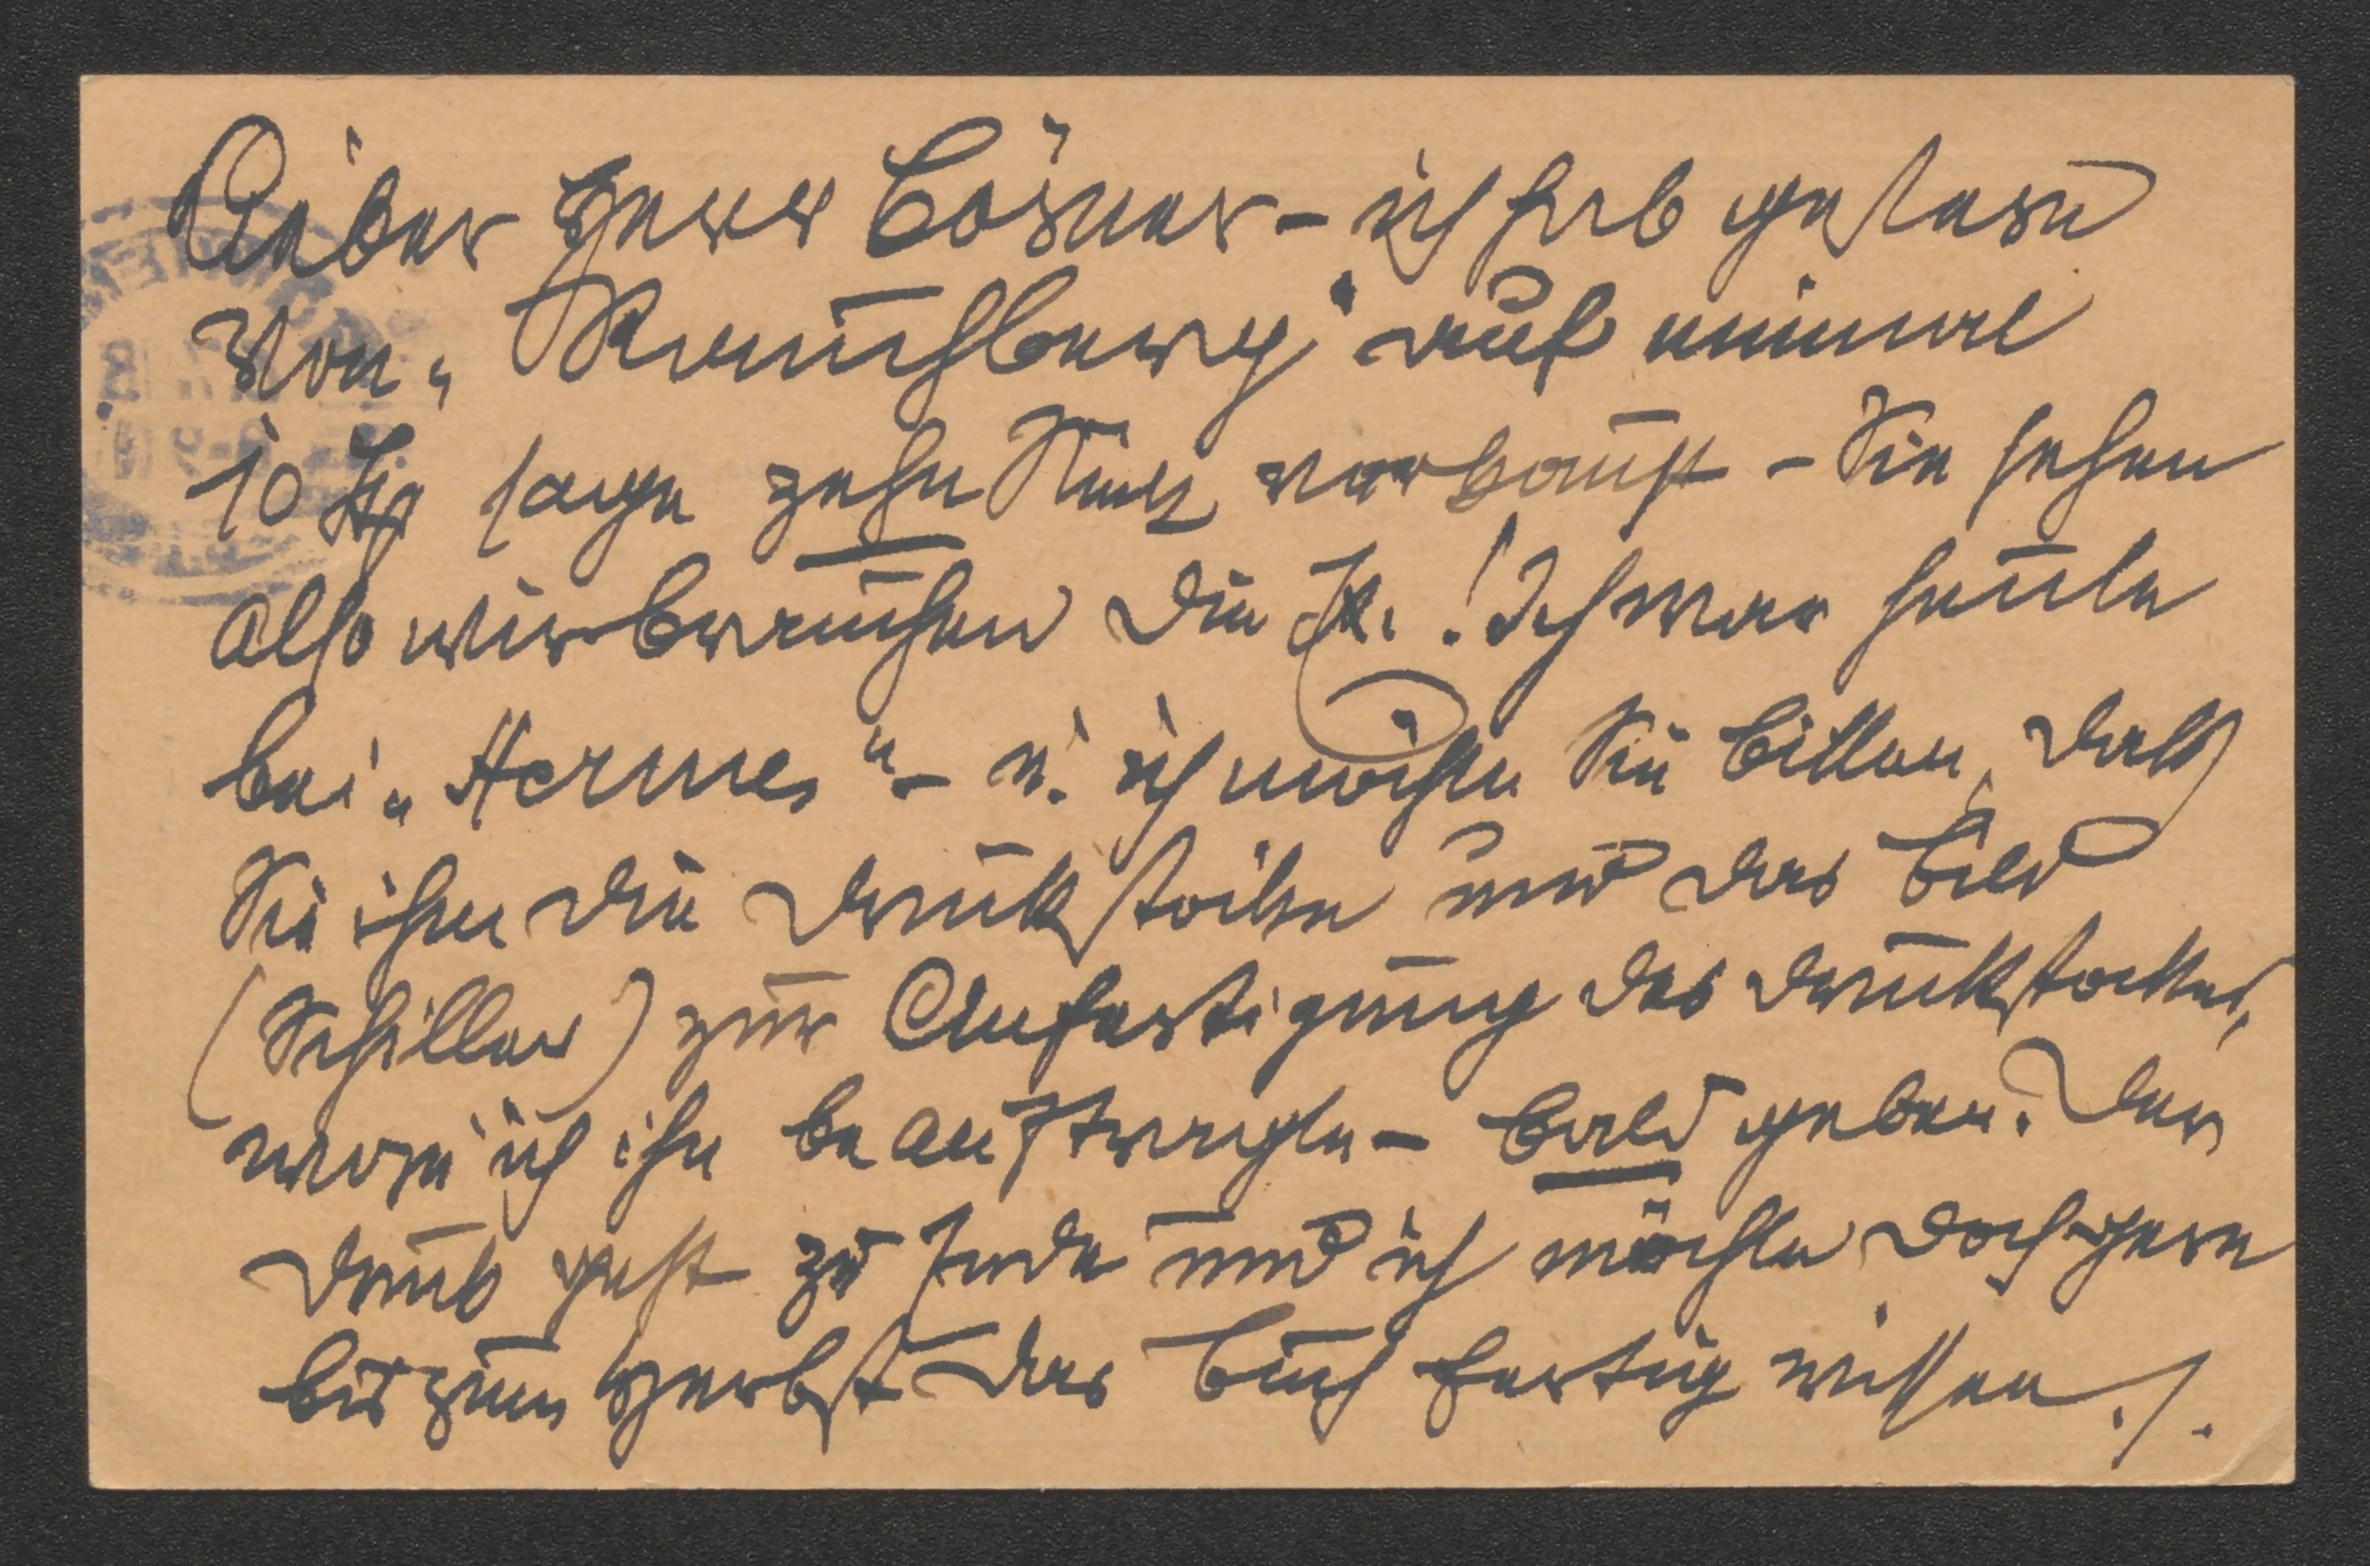 Lieber Herr Cösner - ich hab gestern
von „Rauchberg" auf einmal
10 Ex sage zehn Stück verkauft - Sie sehen
also wir brauchen die Ex.! Ich war heute
bei „Hermes" - u. ich möchte Sie bitten, daß
Sie ihm die Druckstöcke und das Bild
(Schiller) zur Anfertigung des Druckstockes,
wozu ich ihn beauftragte - bald geben. Der
Druck geht zu Ende und ich möchte doch gern
bis zum Herbst das Buch fertig wissen ./.